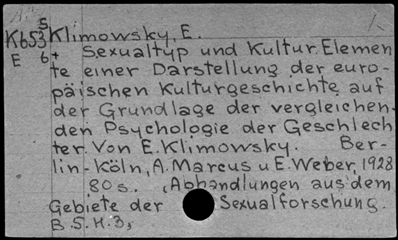 S
K653 Klimowsky, E.
E 6+ Sexualtyp und Kultur. Elemen
te einer Darstellung der euro-
päischen Kulturgeschichte auf
der Grundlage der vergleichen-
den Psychologie der Geschlech
ter. Von E. Klimowsky. Ber-
lin-Köln, A. Marcus u E. Weber, 1928
80 s. (Abhandlungen aus dem
Gebiete der Sexualforschung.
B. 5. H. 3,